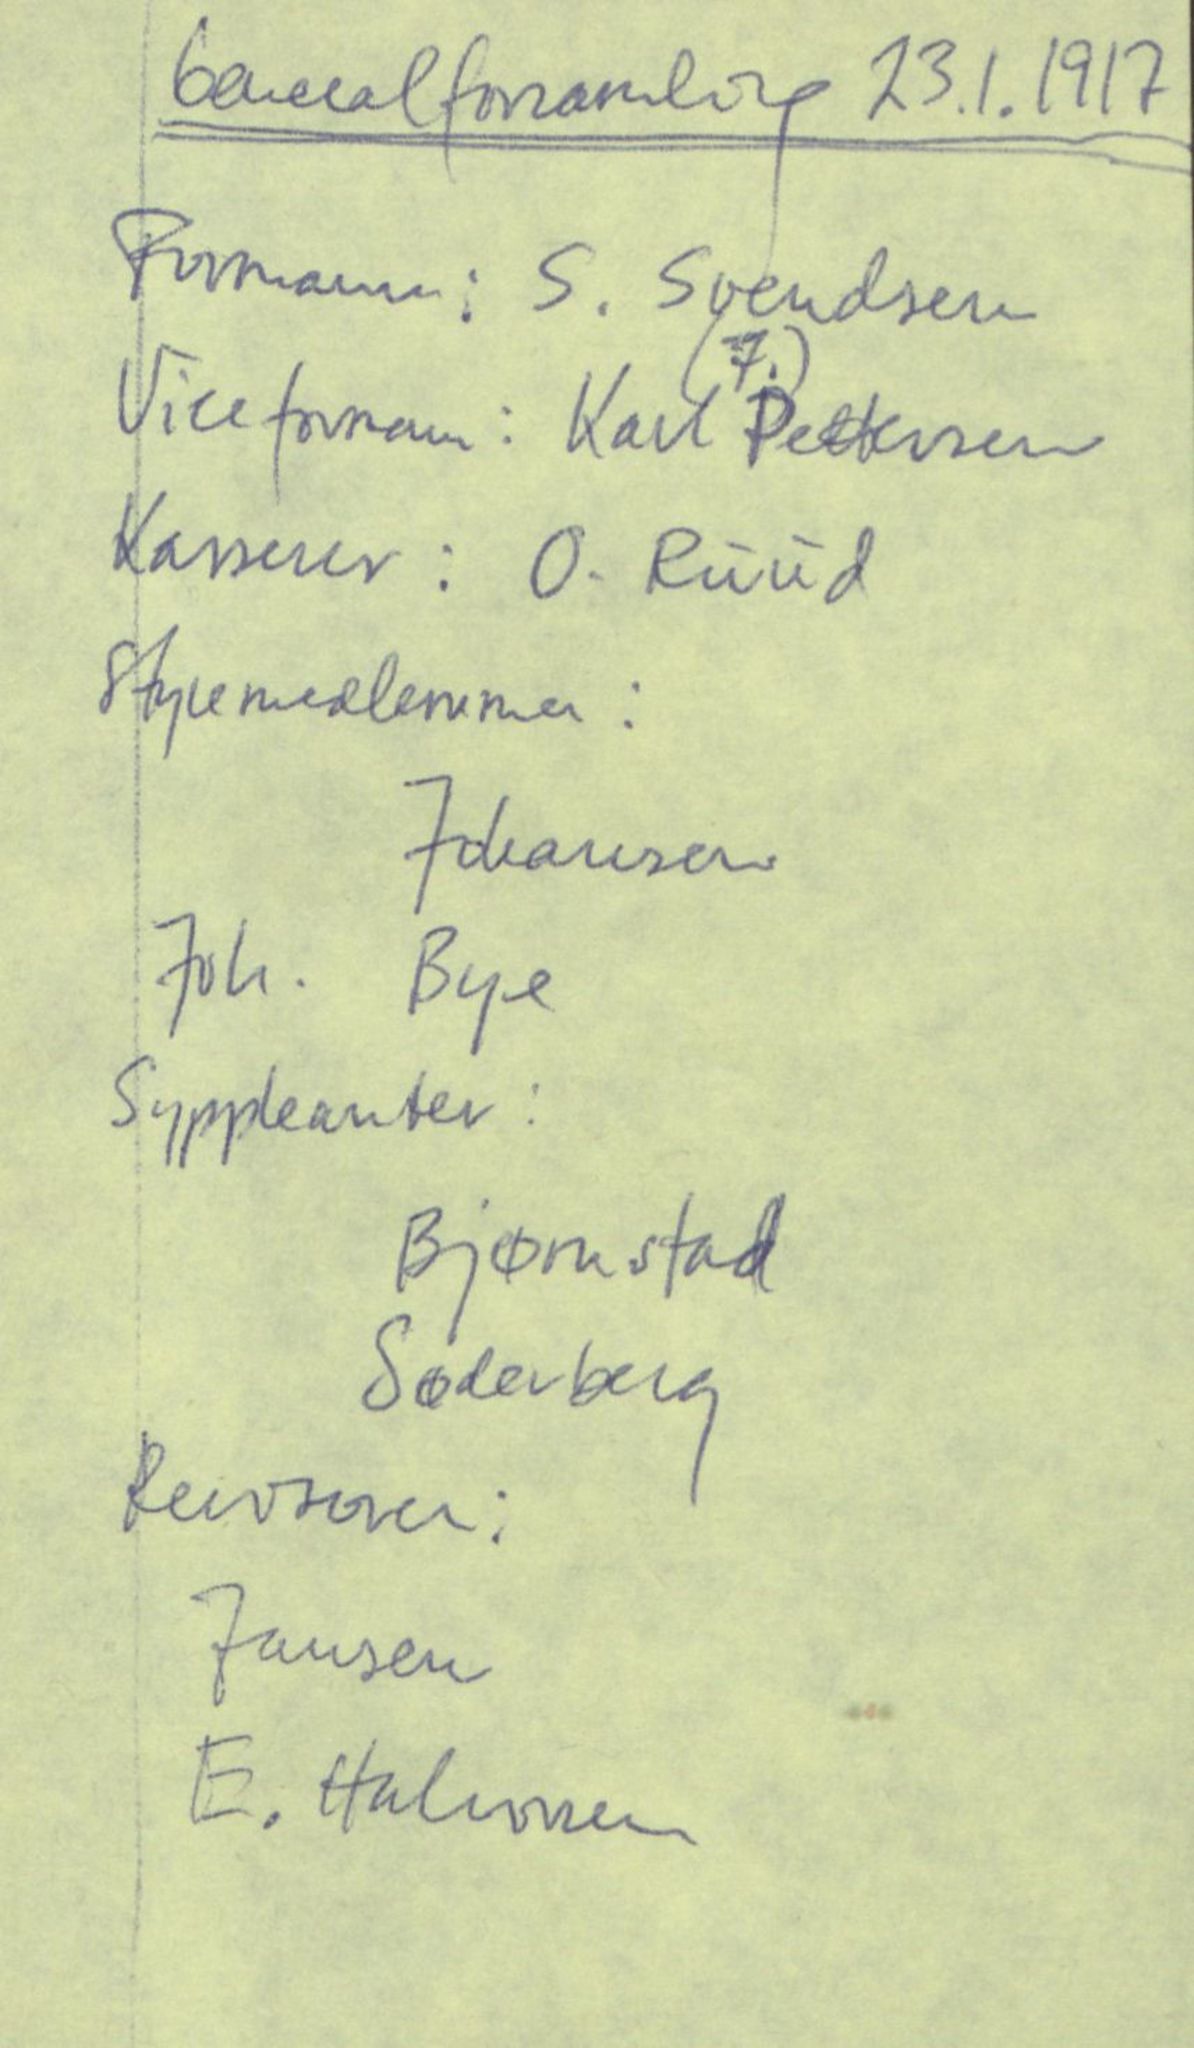 Generalforsamling 23.1.1917
Formann: S. Svendsen
(F.)
Viceformann: Karl Pettersen
Kasserer: O. Rüüd
Styremedlemmer:
Johansen
Joh. Bye
Syppleanter:
Bjørnstad
Søderberg
Revisorer:
Jansen
E. Halvorsen